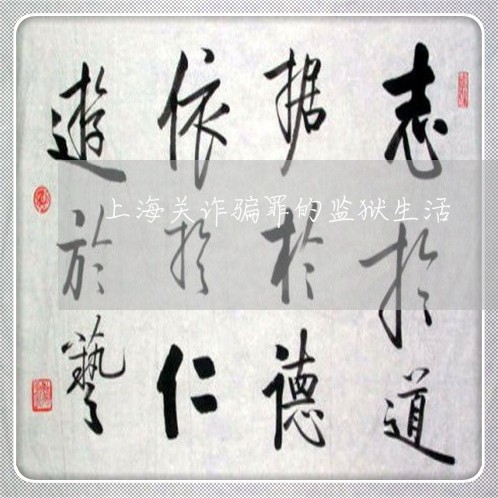 志於道
据於德
依於仁
遊於藝
上海关诈骗罪的监狱生活